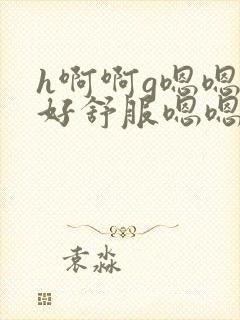 h啊啊g嗯嗯
好舒服嗯嗯
袁淼